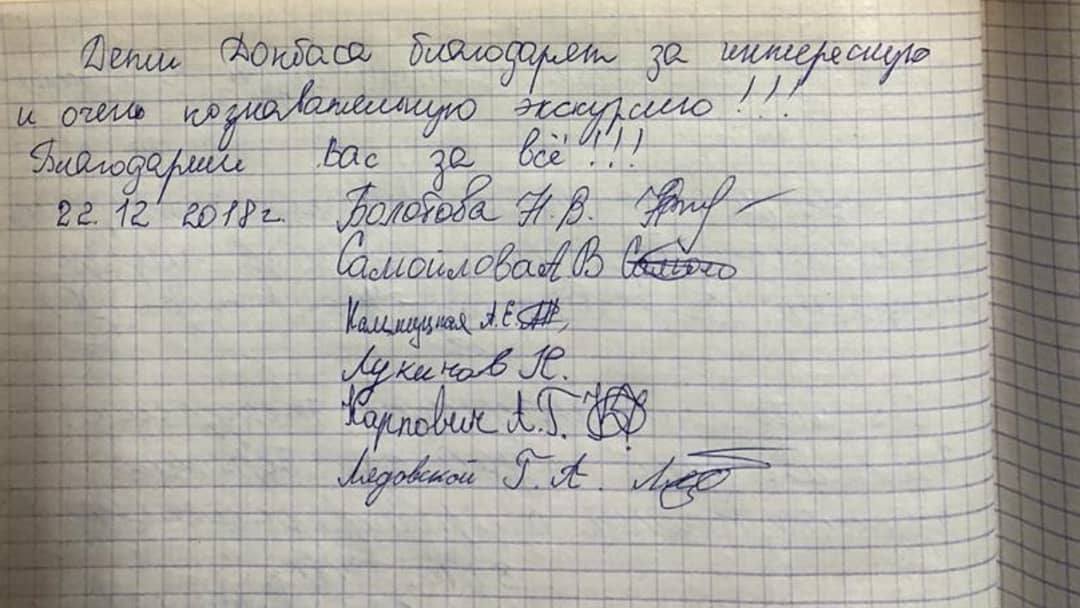 Дети Донбаса благодарят за интересную
и очень познавательную экскурсию!!!
Благодарим Вас за всё!!!
22.12 2018г. Болотова Н.В.
Самойлова А В
А.Е.
Лукинов Н.
Карпович А.Г.
Лядовской Г.А.